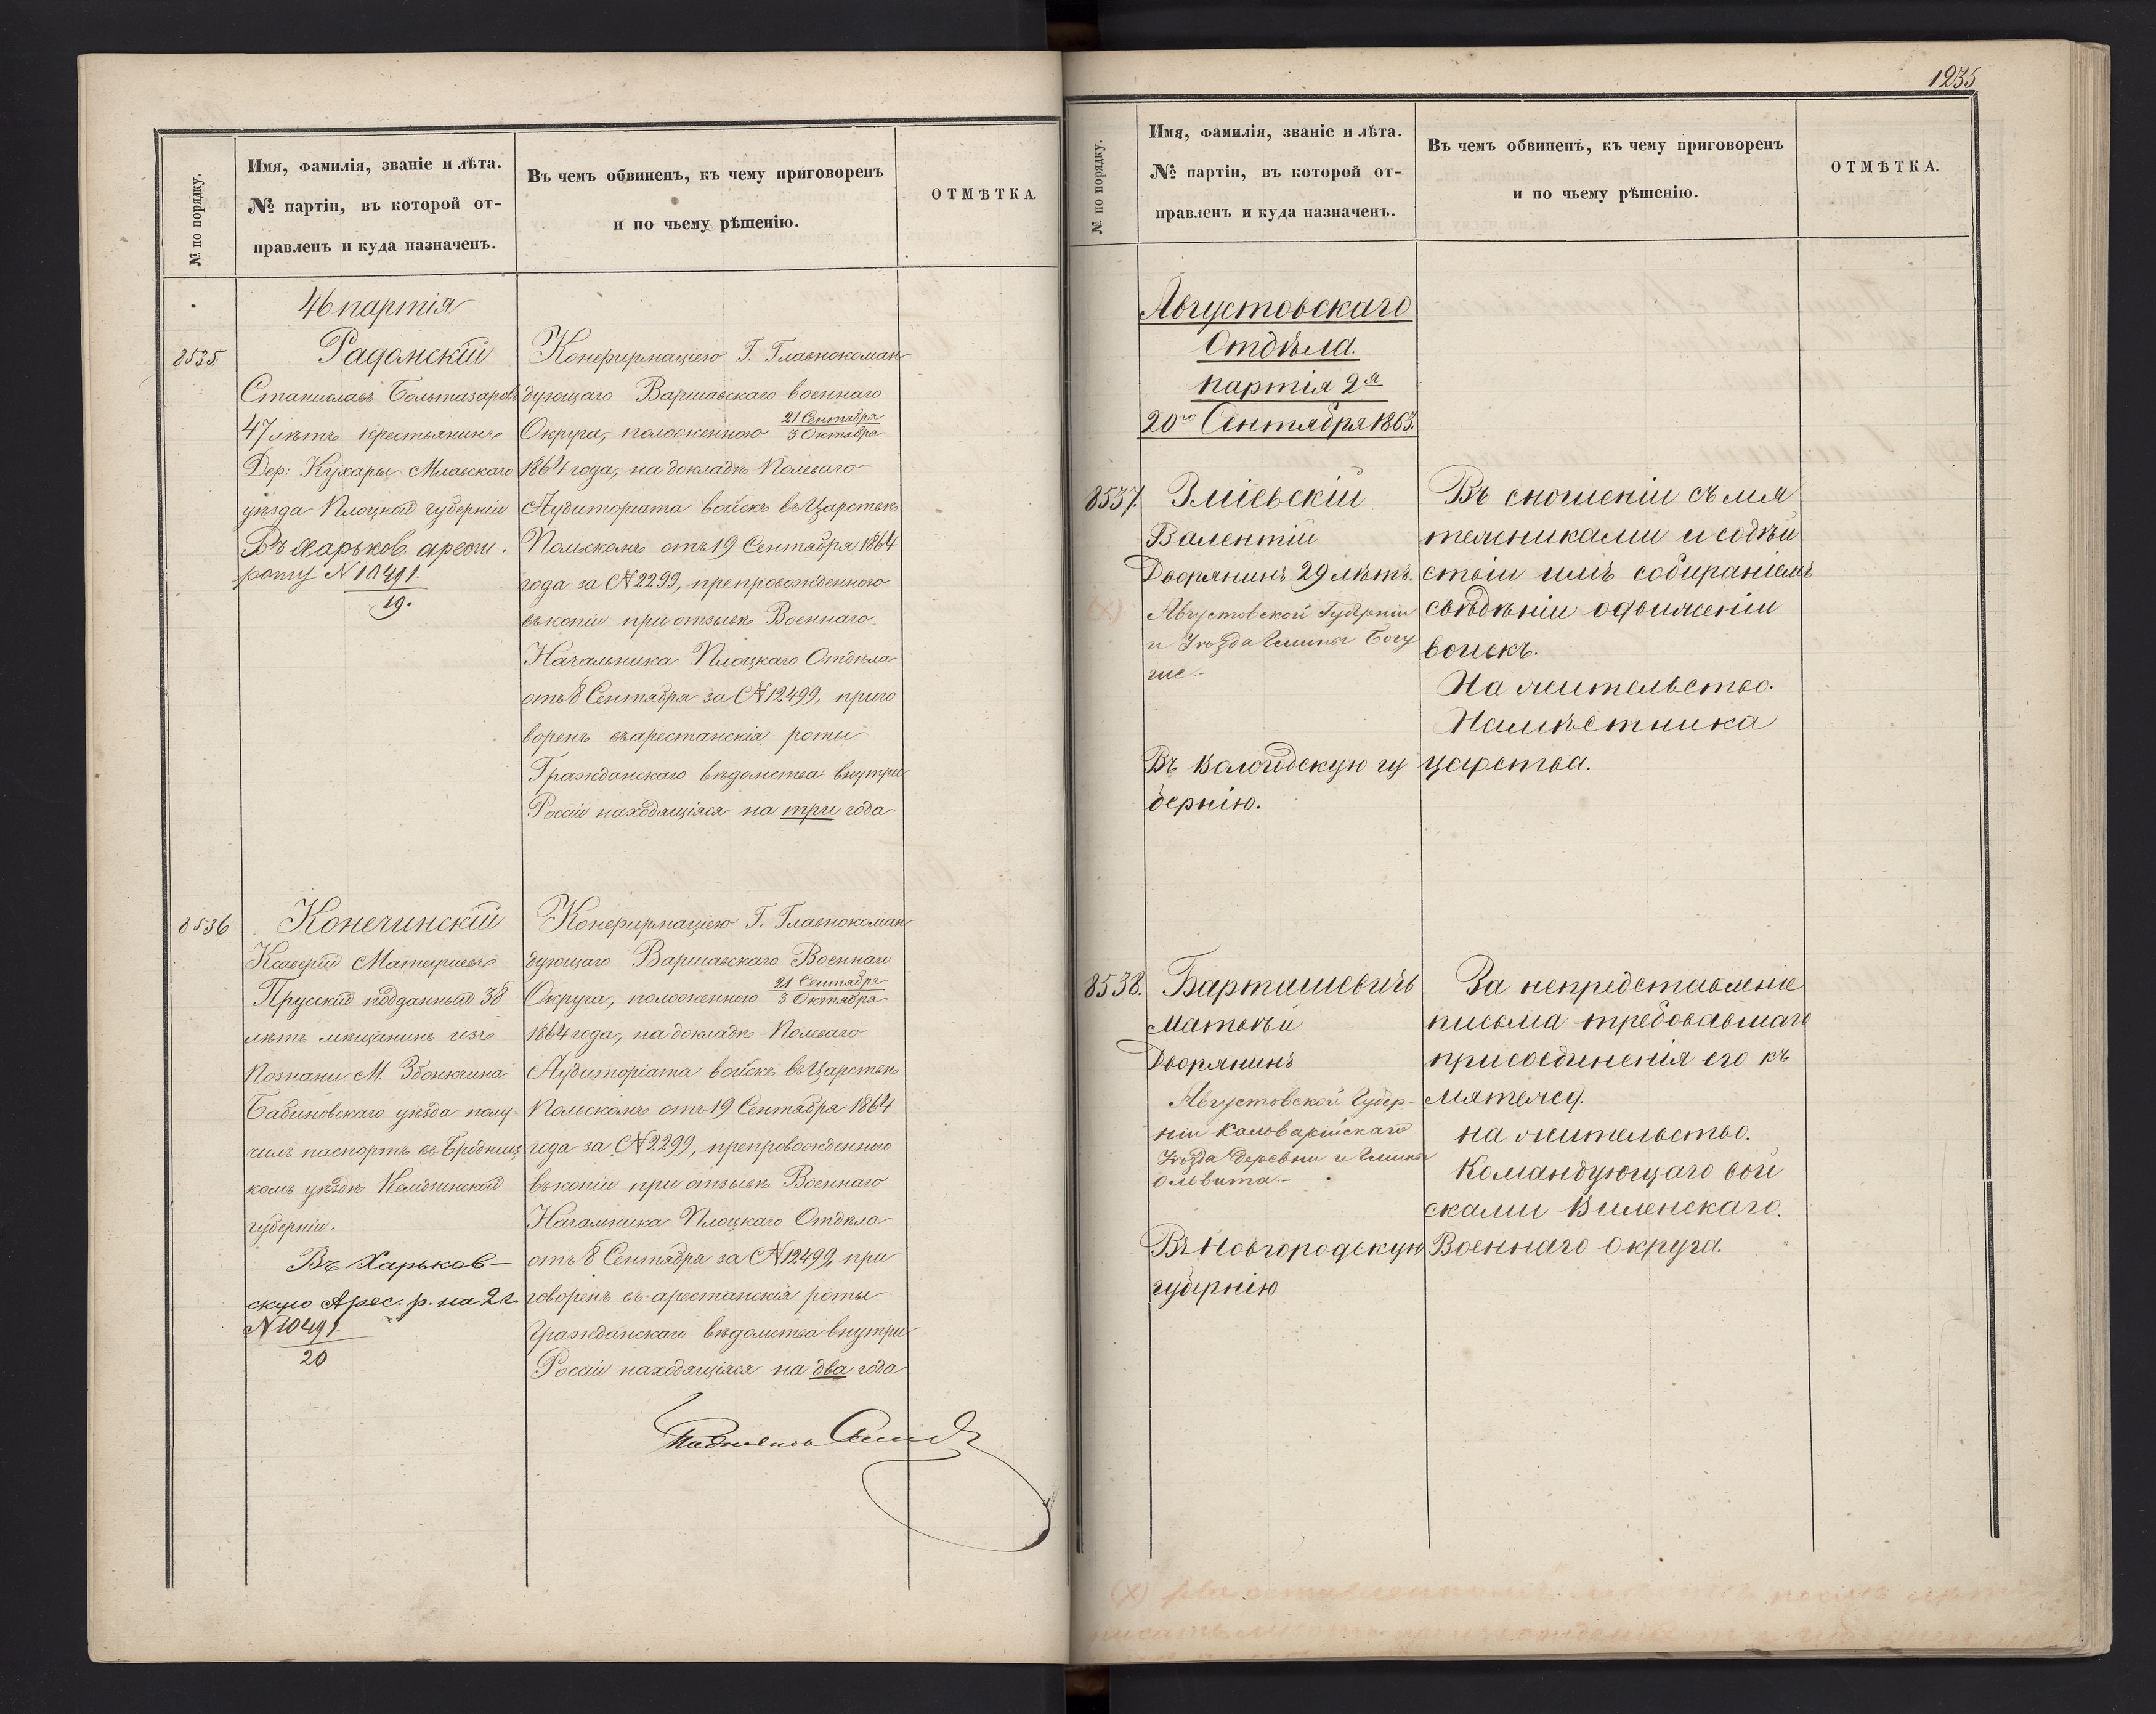 № по порядку.
Имя, фамилія, званіе и лѣта.
№ партіи, въ которой от-
правленъ и куда назначенъ.
Въ чемъ обвиненъ, къ чему приговоренъ
и по чьему рѣшенію.
ОТМѢТКА.
46 партія
8535.
Радомскій
Станиславъ Больтазаровъ
47 лѣтъ крестьянинъ
Дер: Кухары Млавскаго
уѣзда Плоцкой губерніи
Въ Харьков. арест.
роту N 10491.
19.
Конфирмаціею Г. Главнокоман
дующаго Варшавскаго военнаго
Округа, положенною 21 Сентября / 3 Октября
1864 года, на докладѣ Полеваго
Аудиторіата войскъ въ Царствѣ
Польскомъ отъ 19 Сентября 1864
года за N 2299, препровожденного
въ копіи при отзывѣ Военнаго
Начальника Плоцкаго Отдѣла
отъ 8 Сентября за N 12499, приго
воренъ въ арестанскія роты
Гражданскаго вѣдомства внутри
Россіи находящіяся на три года
8536
Конечинскій
Ксаверій Матеушевъ
Прусскій подданный 38
лѣтъ мѣщанинъ изъ
Познани М.
Бабиновскаго уѣзда полу-
чилъ паспортъ въ Бродниц
комъ уѣздѣ
губерніи.
Въ Харьков-
скую Арес. р. на 2 г.
N 10491.
20
Конфирмаціею Г. Главнокоман
дующаго Варшавскаго Военнаго
Округа, положенною 21 Сентября / 3 Октября
1864 года, на докладѣ Полеваго
Аудиторіата войскъ въ Царствѣ
Польскомъ отъ 19 Сентября 1864
года за N 2299, препровожденного
въ копіи при отзывѣ Военнаго
Начальника Плоцкаго Отдѣла
отъ 8 Сентября за N 12499, при
говоренъ въ арестанскія роты
Гражданскаго вѣдомства внутри
Россіи находящіяся на два года
1235
№ по порядку.
Имя, фамилія, званіе и лѣта.
№ партіи, въ которой от-
правленъ и куда назначенъ.
Въ чемъ обвиненъ, къ чему приговоренъ
и по чьему рѣшенію.
ОТМѢТКА.
Августовскаго
Отдѣла.
партія 2я
20го Сентября 1863.
8537.
Зміевскій
Валентій
Дворянинъ 29 лѣтъ.
(X).
Августовской Губерніи
и Уѣзда Гмины Богу
Въ Вологодскую гу
бернію.
Въ сношеніи съ мя
тежниками и содѣй
ствіи имъ собираніемъ
свѣдѣніи о движеніи
войскъ.
На жительство.
Намѣстника
царства.
8538.
Барташевичъ
Матвѣй
Дворянинъ
Августовской Губер-
ніи Кальварійскаго
Уѣзда Деревни и Гмины
Ольвита.-
Въ Новгородскую
губернію
За непредставленіе
письма требовавшаго
присоединенія его къ
мятежу.
на жительство.
Командующаго вой
сками Виленскаго.
Военнаго Округа.